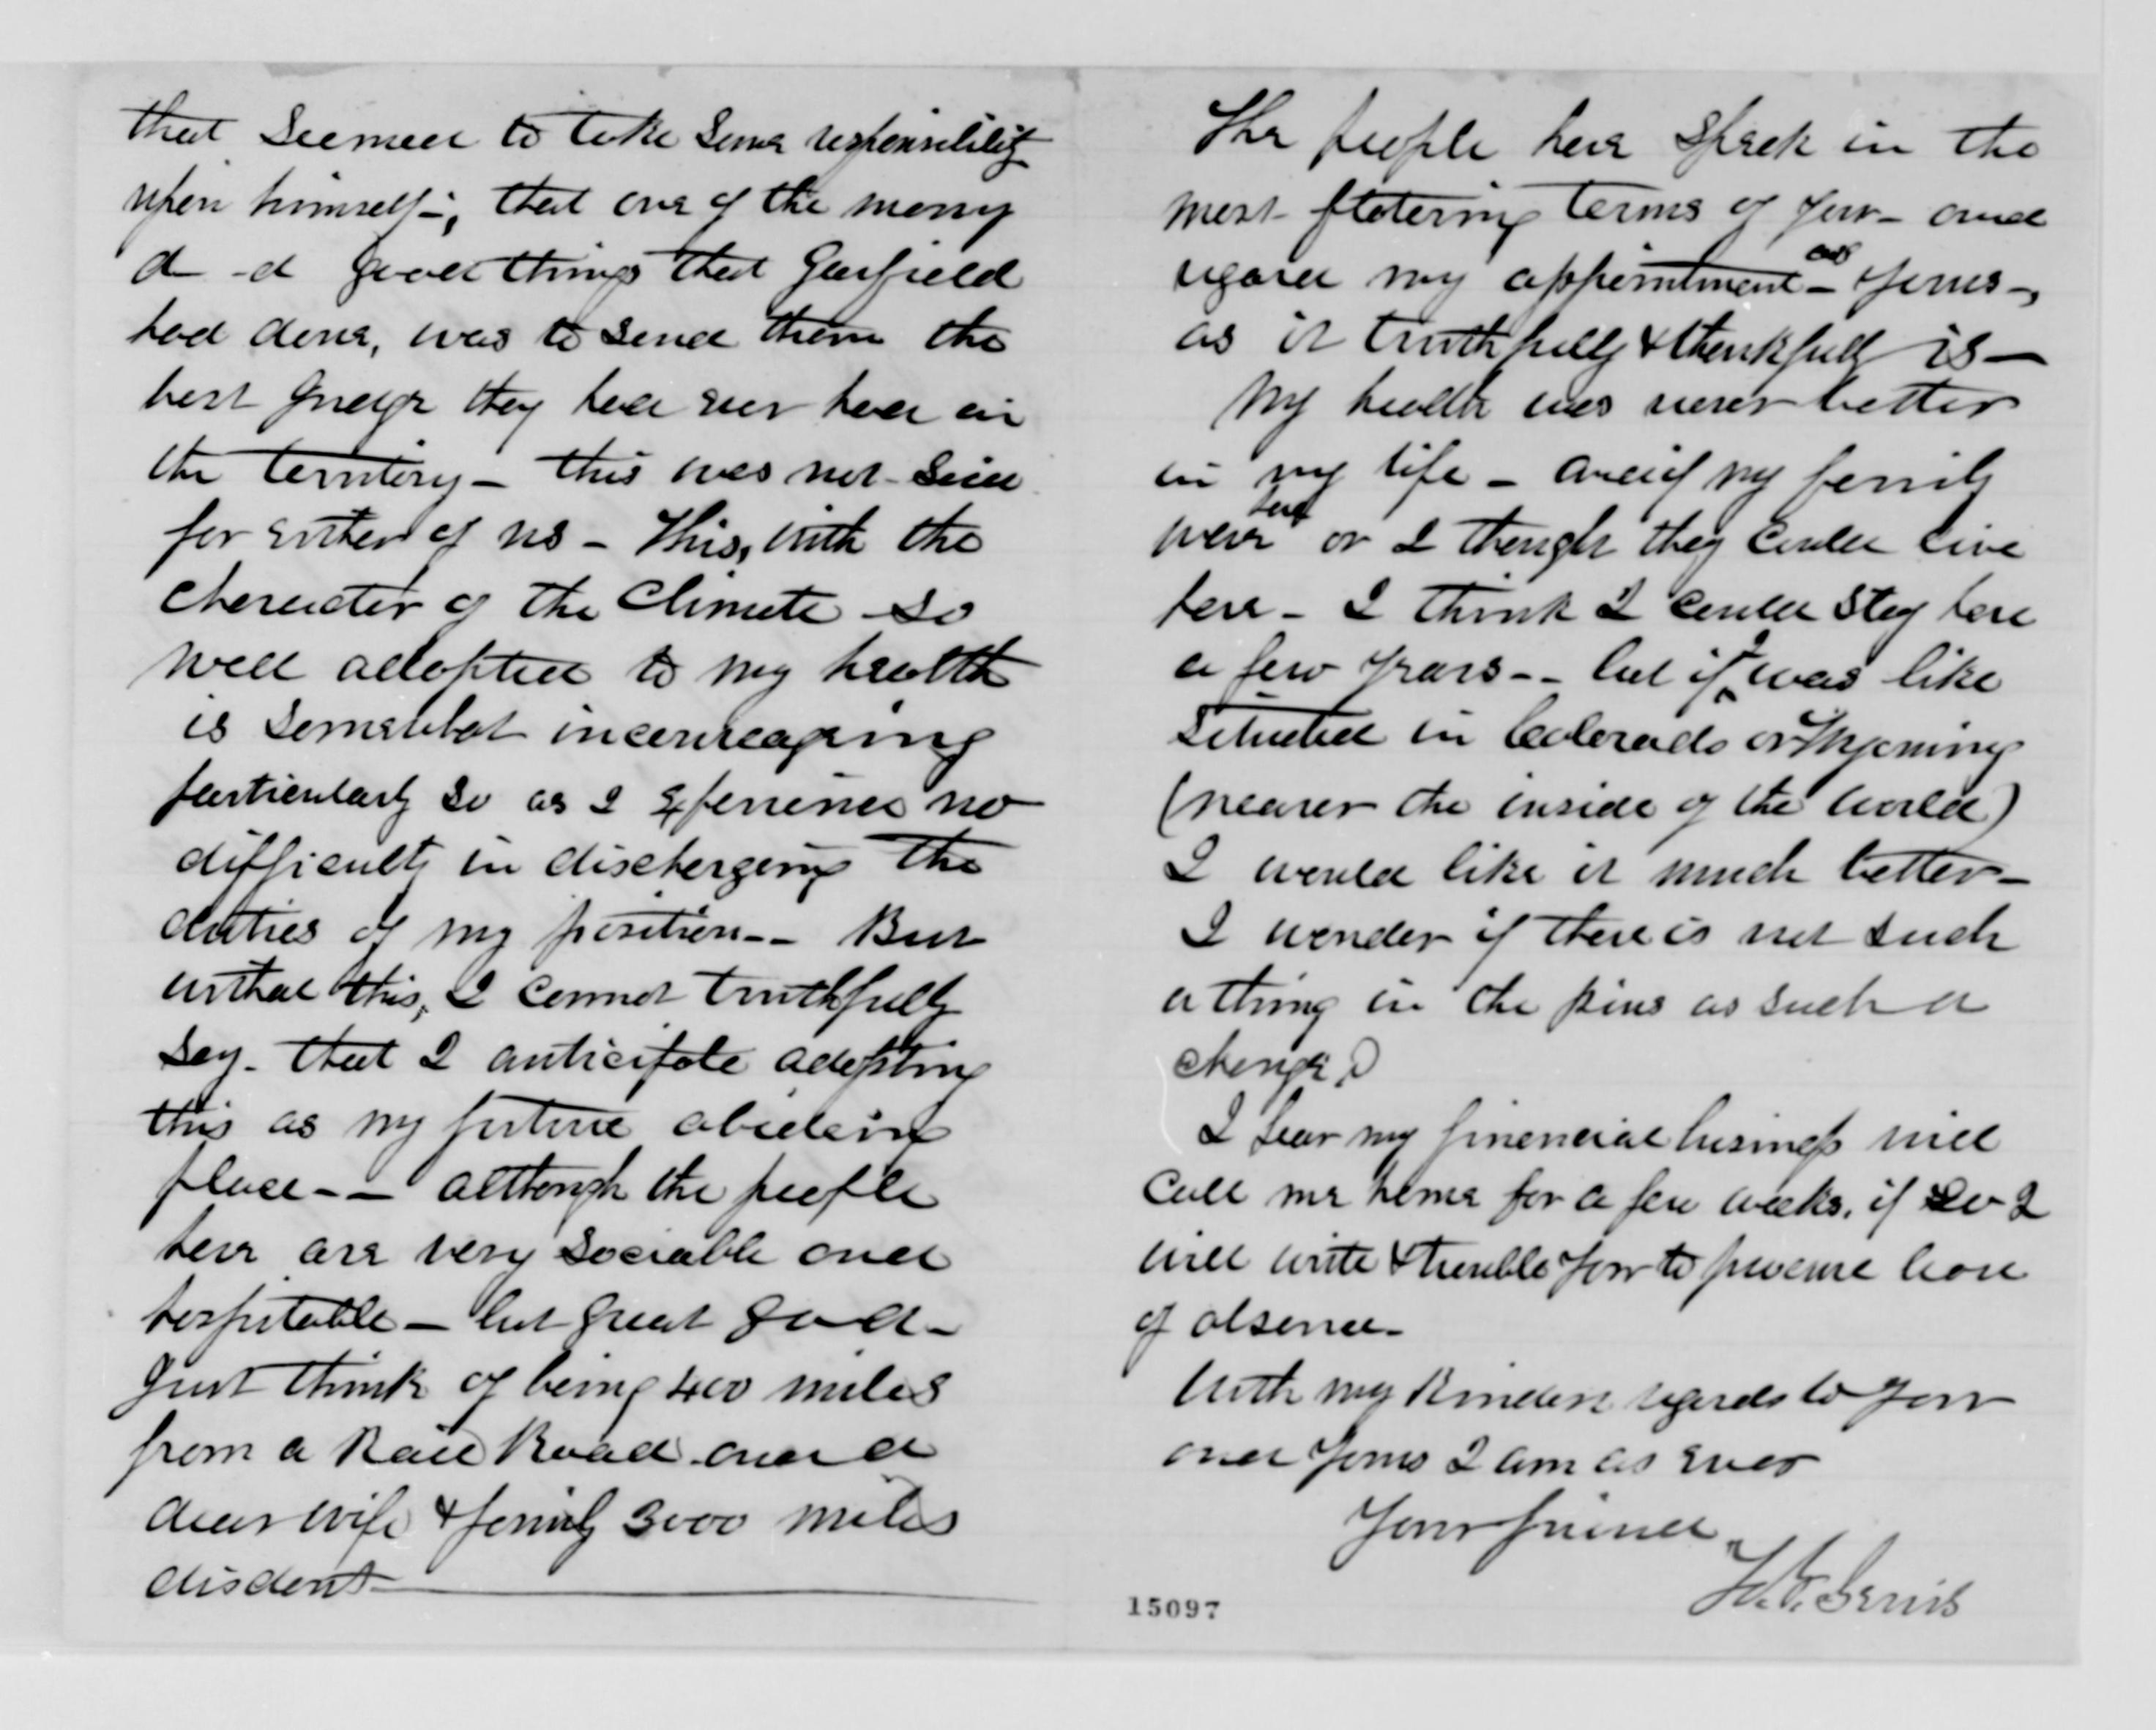 that seemed to take some responsibility
upon himself–, that one of the many
d–d good things that Garfield
had done, was to send them the
best Judge they had ever had in
the territory – this was not said
for either of us – This, with the
character of the Climate so
well adapted to my health
is somewhat incoureaging
particularly so as I experience no
difficulty in discharging the
duties of my position–– But
withal this, I cannot truthfully
say– that I anticipate adopting
this as my future abideing
place–– although the people
here are very sociable and
hospitable – but great god–
Just think of being 400 miles
from a Rail Road and a
dear wife & family 3000 miles
disdent
The people here speak in the
most flatering terms of you– and
regard my appointment – as yours–,
as it truthfully & thankfull is –
My health was never better
in my life – and if my family
were here or I thought they could live
here – I think I could stay here
a few years –– but if I was like
situated in Colorado or Wyoming
(nearer the inside of the world)
I would like it much better –
I wonder if there is not such
a thing in the pins as such a
change?
I fear my financial business will
Call me home for a few weeks. if so I
will write & trouble you to procure leave
of absence–
With my kindest regards to you
and yours I am as ever
Your friend
15097